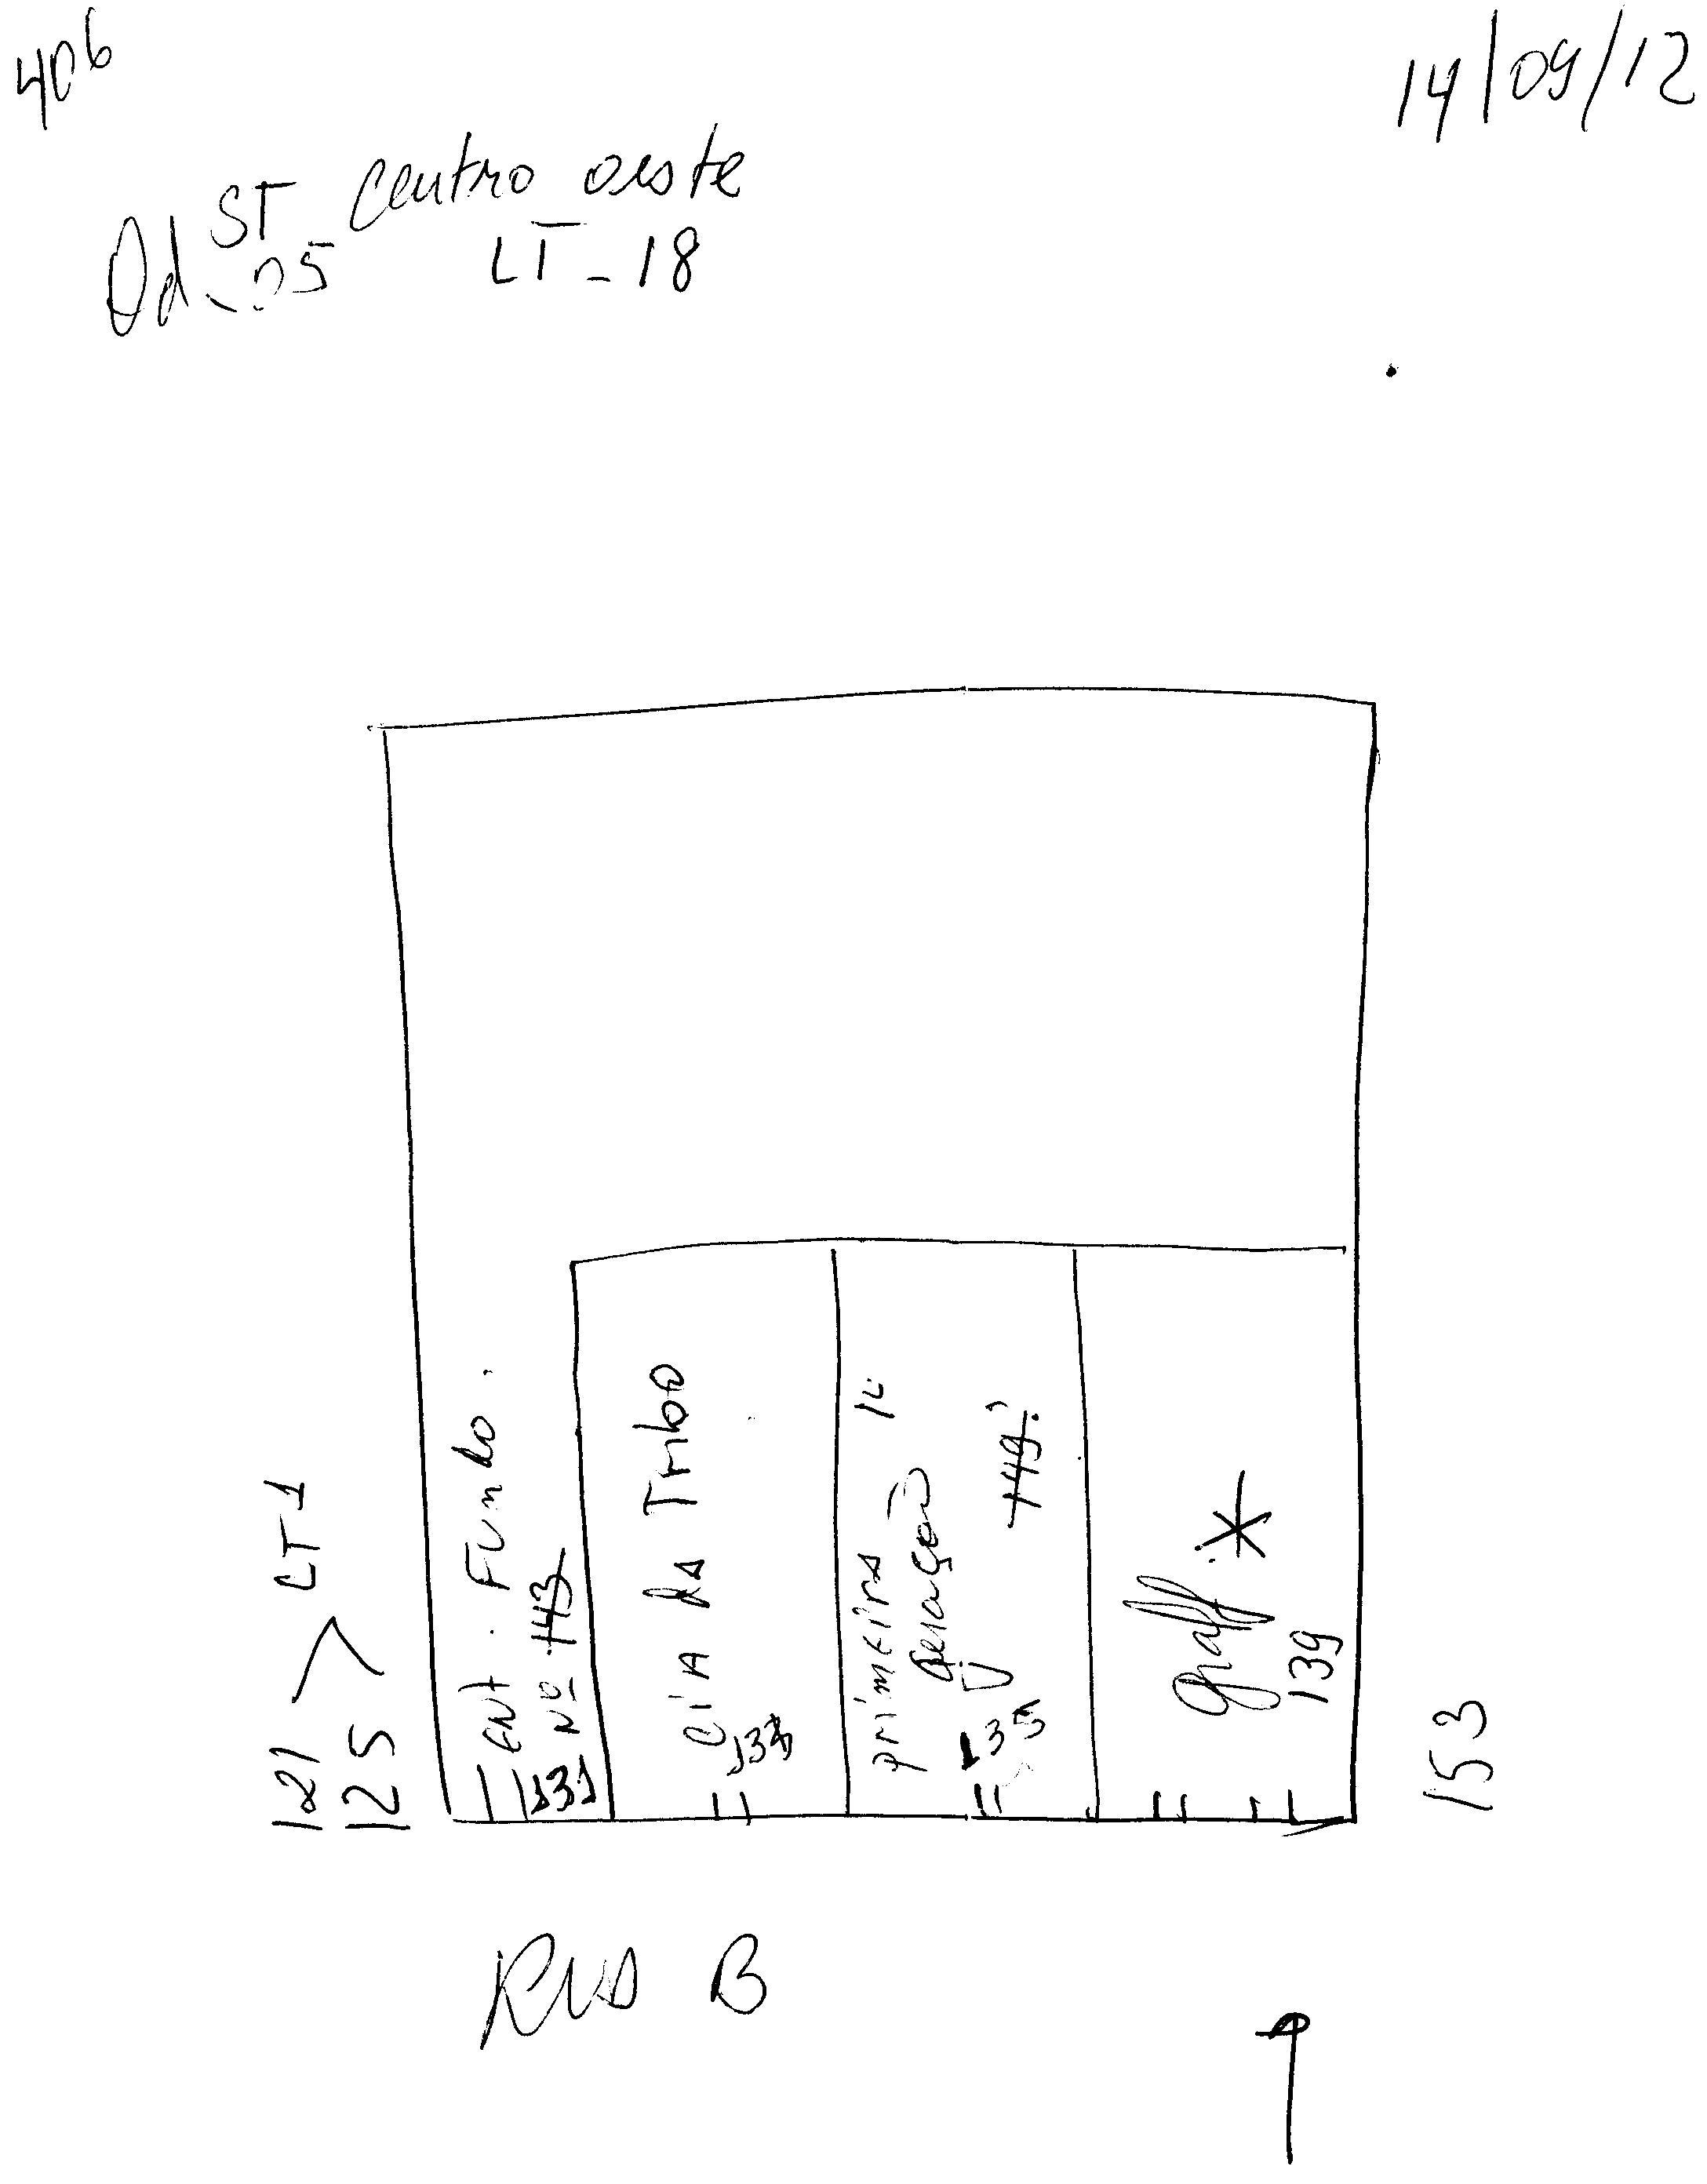 406
14/09/12
ST Centro oeste
Qd. 05 LT - 18
121 > LT 1
125
Ent. Fundo.
Nº 143
131
Cia da Tribo
133
primeira
geração
149
135
graff *
139
153
Rua B